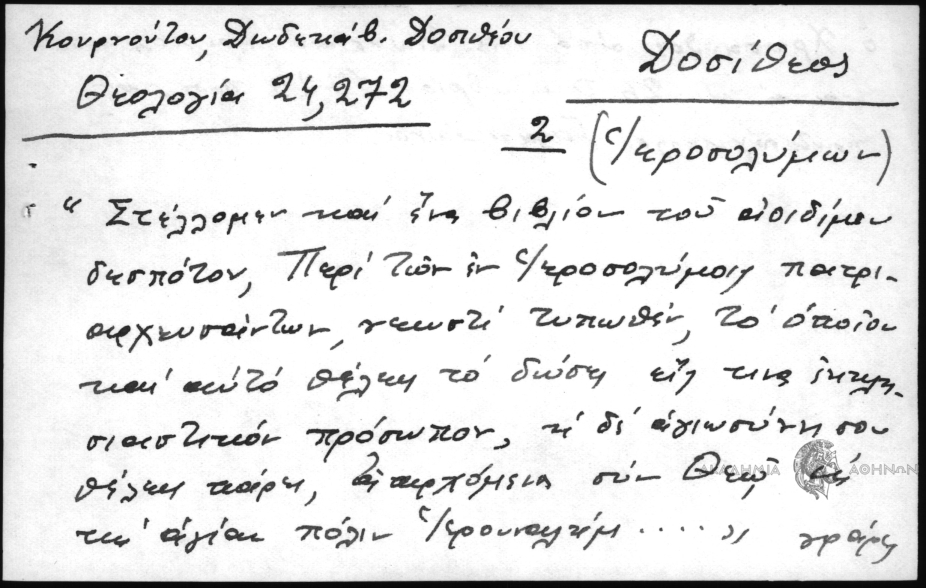 Κουρνούτου, Δωδεκάβ. Δοσιθέου
Θεολογία 24,272
Δοσίθεος
2 (Ἱεροσολύμων)
"Στέλλομεν καί ἕνα βιβλίον τοῦ ἀοιδίμου
δεσπότου, Περί τῶν ἐν Ἱεροσολύμοις πατρι-
αρχευσάντων, νεωστί τυπωθέν, τό ὁποῖον
καί αὐτό θέλεις τό δώσῃ εἰς τινα ἐκκλη-
σιαστικόν πρόσωπον, ἡ δέ ἁγιωσύνη σου
θέλεις πάρῃ, ἐρχόμενος σύν Θεῷ εἰς
τήν ἁγίαν πόλιν Ἱερουσαλήμ ....." γράφει
ΑΚΑΔΗΜΙΑ ΑΘΗΝΩΝ